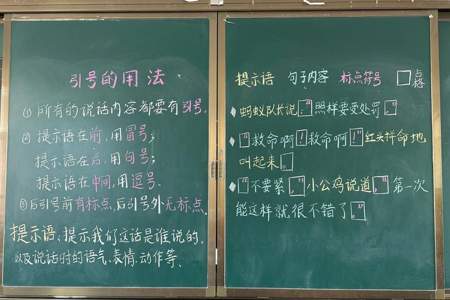 引号的用法
① 所有的说话内容都要有引号。
② 提示语在前,用冒号;
提示语在后,用句号;
提示语在中间,用逗号。
③后引号前有标点,后引号外无标点。
提示语:提示我们这话是谁说的,
以及说话时的语气、表情、动作等。
提示语 句子内容 标点符号
蚂蚁队长说:“照样要受处罚。”
“救命啊!救命啊!”红头拼命地
叫起来。
“不要紧,”小公鸡说道,“第一次
能这样就很不错了。”